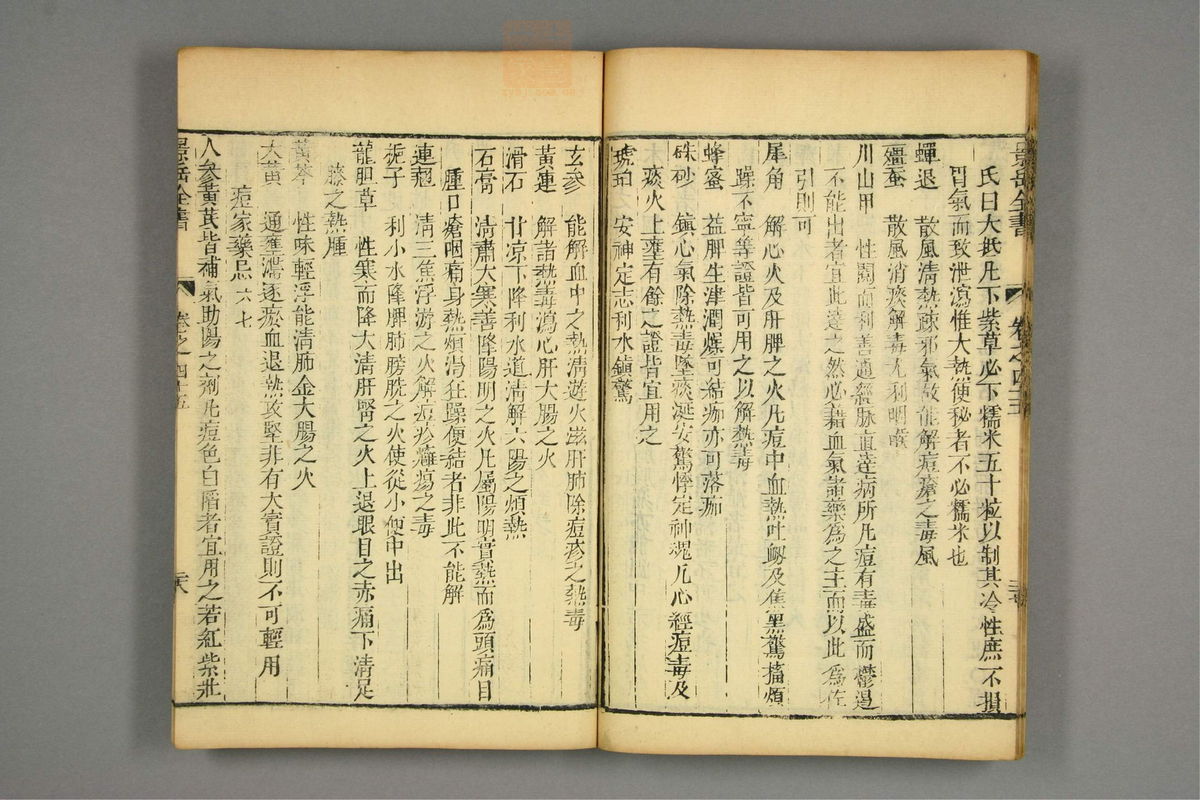 景岳全書 卷之四十五
氏曰大抵凡下紫草必下糯米五十粒以制其冷性庶不損
胃氣而致泄瀉惟大熱便秘者不必糯米也
蟬退 散風清熱疎邪氣故能解痘瘡之毒風
殭蚕 散風消痰解毒尤利咽喉
川山甲 性閗而利善通經脉直達病所凡痘有毒盛而鬱遏
不能出者宜此達之然必藉血氣諸藥爲之主而以此爲佐
引則可
犀角 解心火及肝脾之火凡痘中血熱吐衂及焦黑驚搐煩
躁不寧等證皆可用之以解熱毒
蜂蜜 益脾生津潤燥可結痂亦可落痂
硃砂 鎮心氣除熱毒墜痰涎安驚悸定神魂凡心經痘毒及
痰火上壅有餘之證皆宜用之
琥珀 安神定志利水鎮驚
玄參 能解血中之熱清遊火滋肝肺除痘疹之熱毒
黃連 解諸熱毒瀉心肝大腸之火
滑石 甘凉下降利水道清解六陽之煩熱
石膏 清肅大寒善降陽明之火凡屬陽明實熱而爲頭痛目
腫口瘡咽痛身熱煩渴狂躁便結者非此不能解
連翹 清三焦浮游之火解痘疹癰瘍之毒
梔子 利小水降脾肺膀胱之火使從小便中出
龍胆草 性寒而降大清肝腎之火上退眼目之赤痛下清足
膝之熱腫
黃芩 性味輕浮能清肺金大腸之火
大黃 通壅滯逐瘀血退熱攻堅非有大實證則不可輕用
痘家藥忌 六七
人參黃芪皆補氣助陽之劑凡痘色白䧟者宜用之若紅紫壯
景岳全書 卷之四十五 六